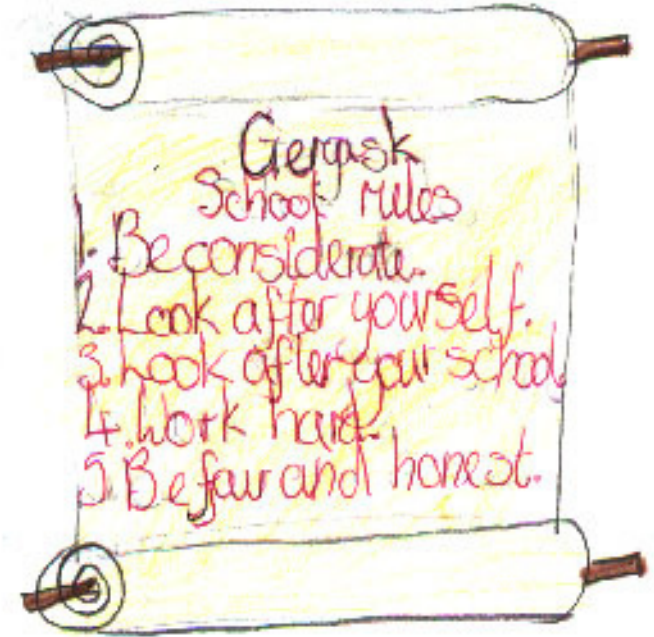 Gergask
School rules
1. Be considerate.
2. Look after yourself.
3. Look after your school
4. Work hard.
5. Be fair and honest.